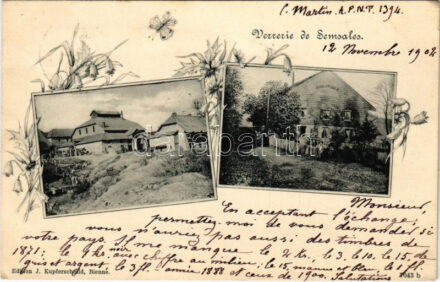 C. Martin. A.P.N.T. 1394.
Verrerie de Semsales.
12 Novembre 1902
Monsieur,
En acceptant l'échange,
permettez moi de vous demander si
vous n'auriez pas aussi des timbres de
votre pays. Il me manque le 2 Kr, 3 kr, 10 kr, 15 de
1871: le 9 kr. avec chiffre au milieu; le 15, mauve et bleu, le 1 fl
gris et argent, le 3 fl. année 1888 et ceux de 1900. Salutations
Edition J. Kupferschmid, Bienne.
1643 b
darabanth